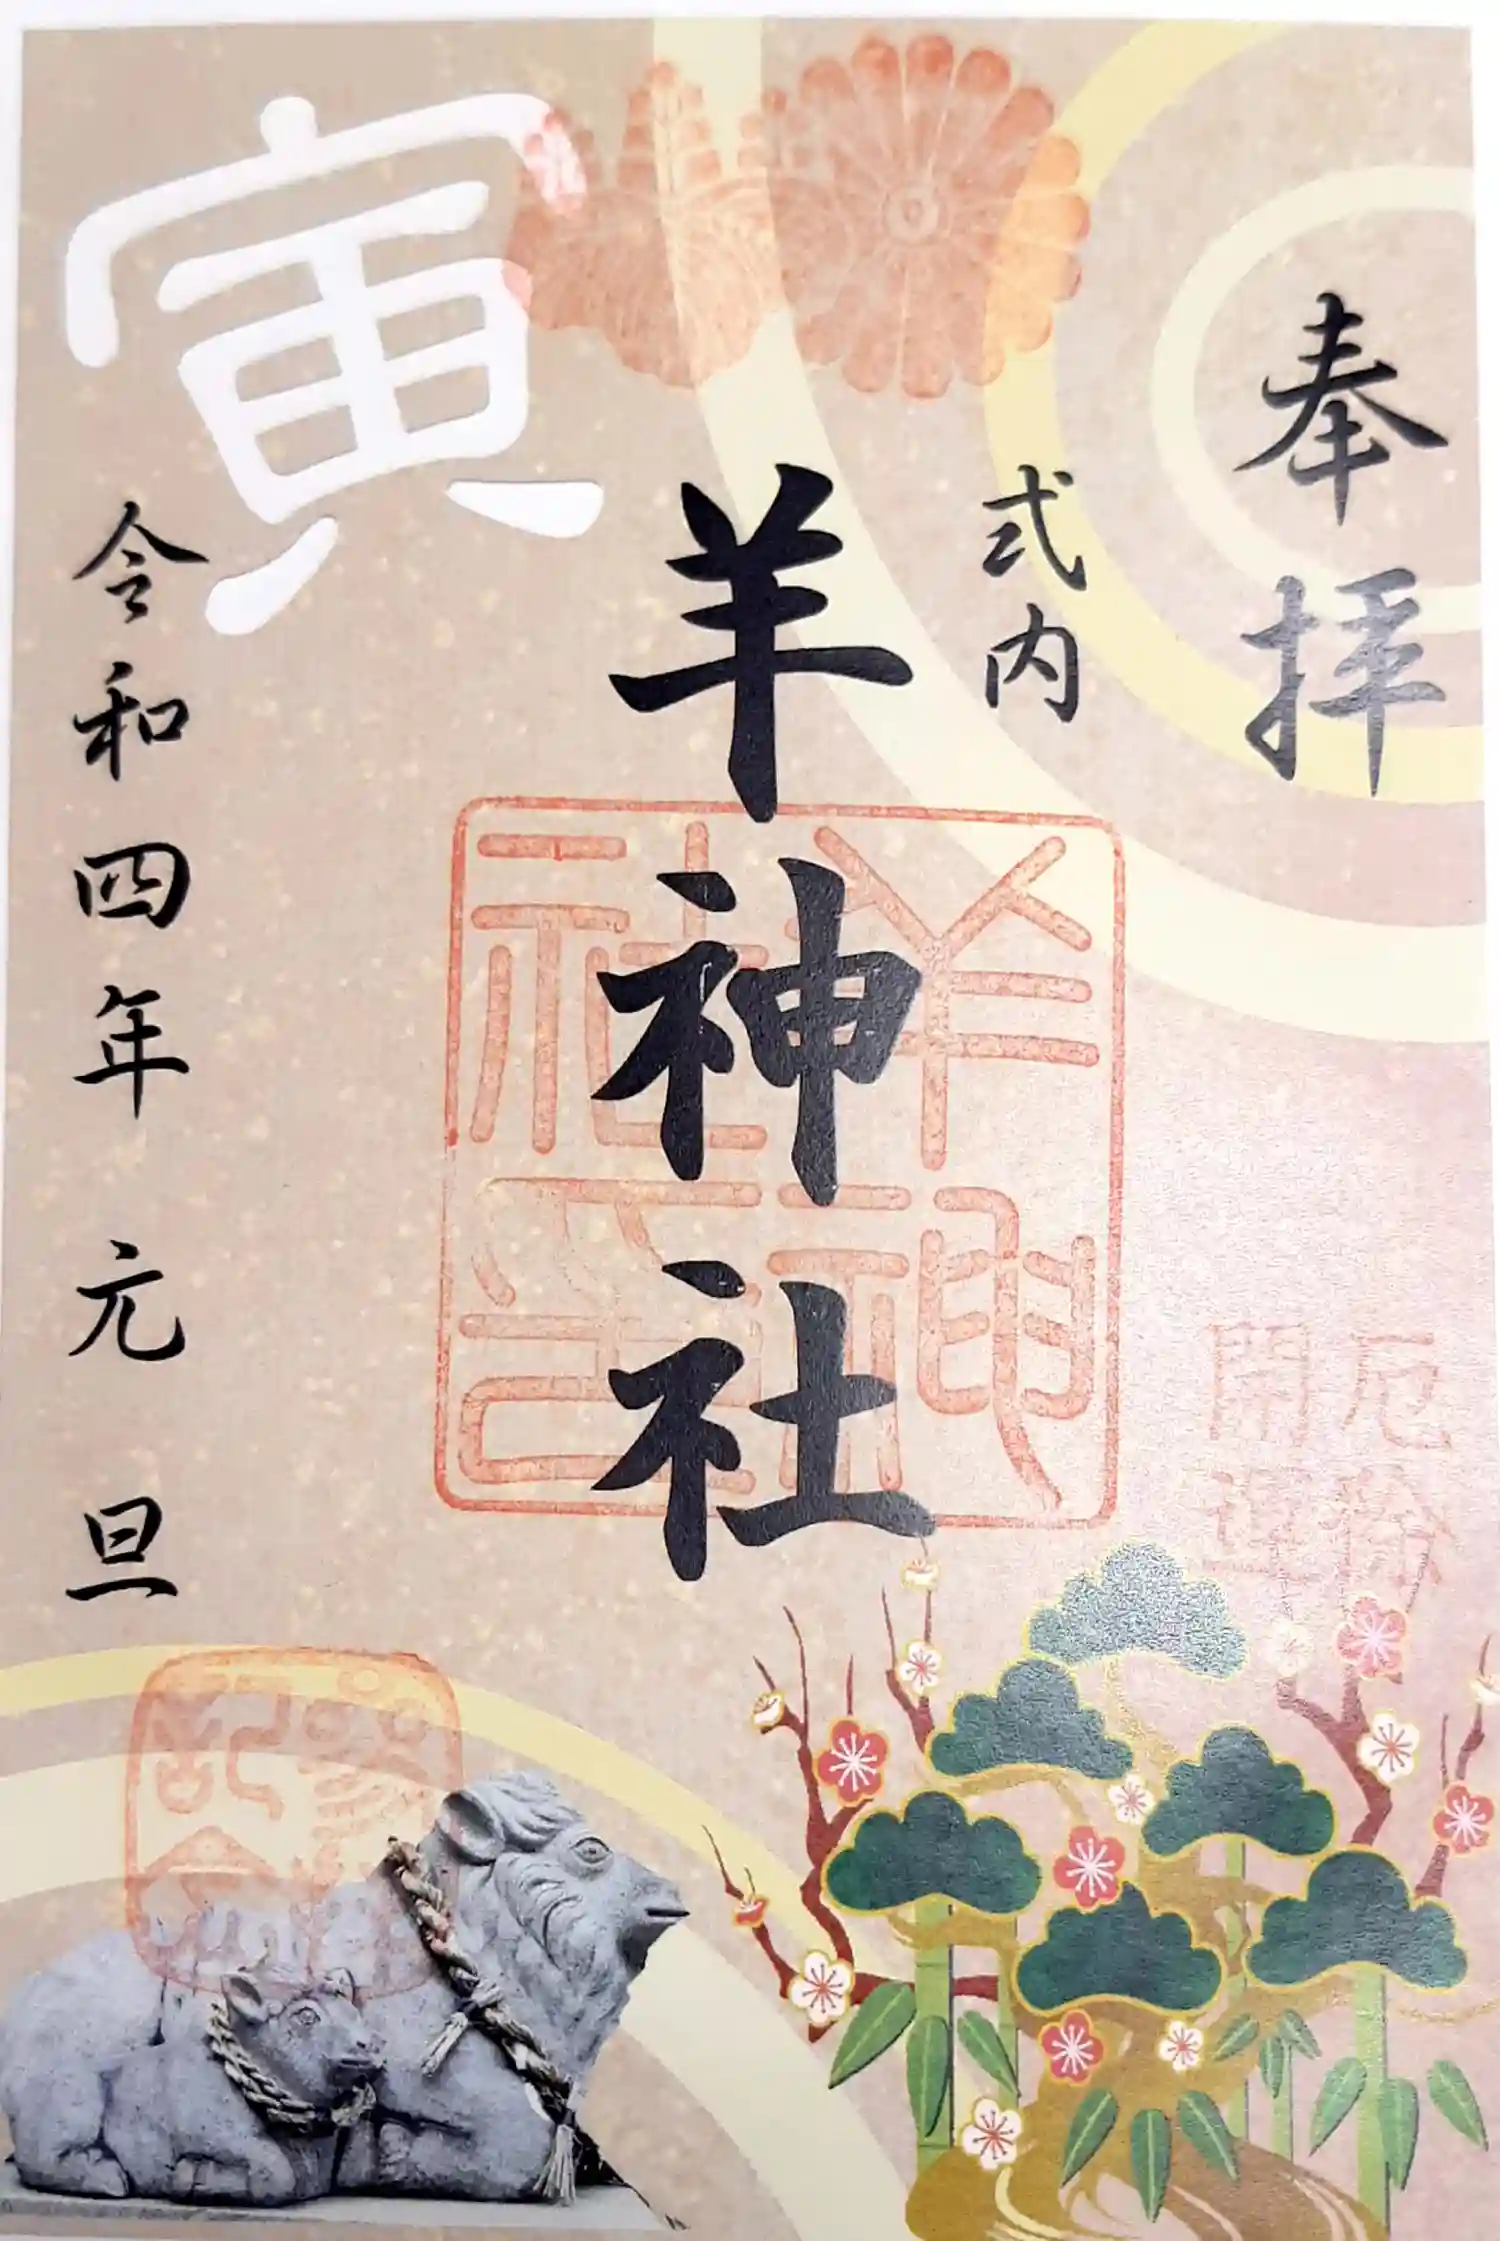 奉拝
式内
羊神社
寅
令和四年元旦
羊神社印
厄除
開運